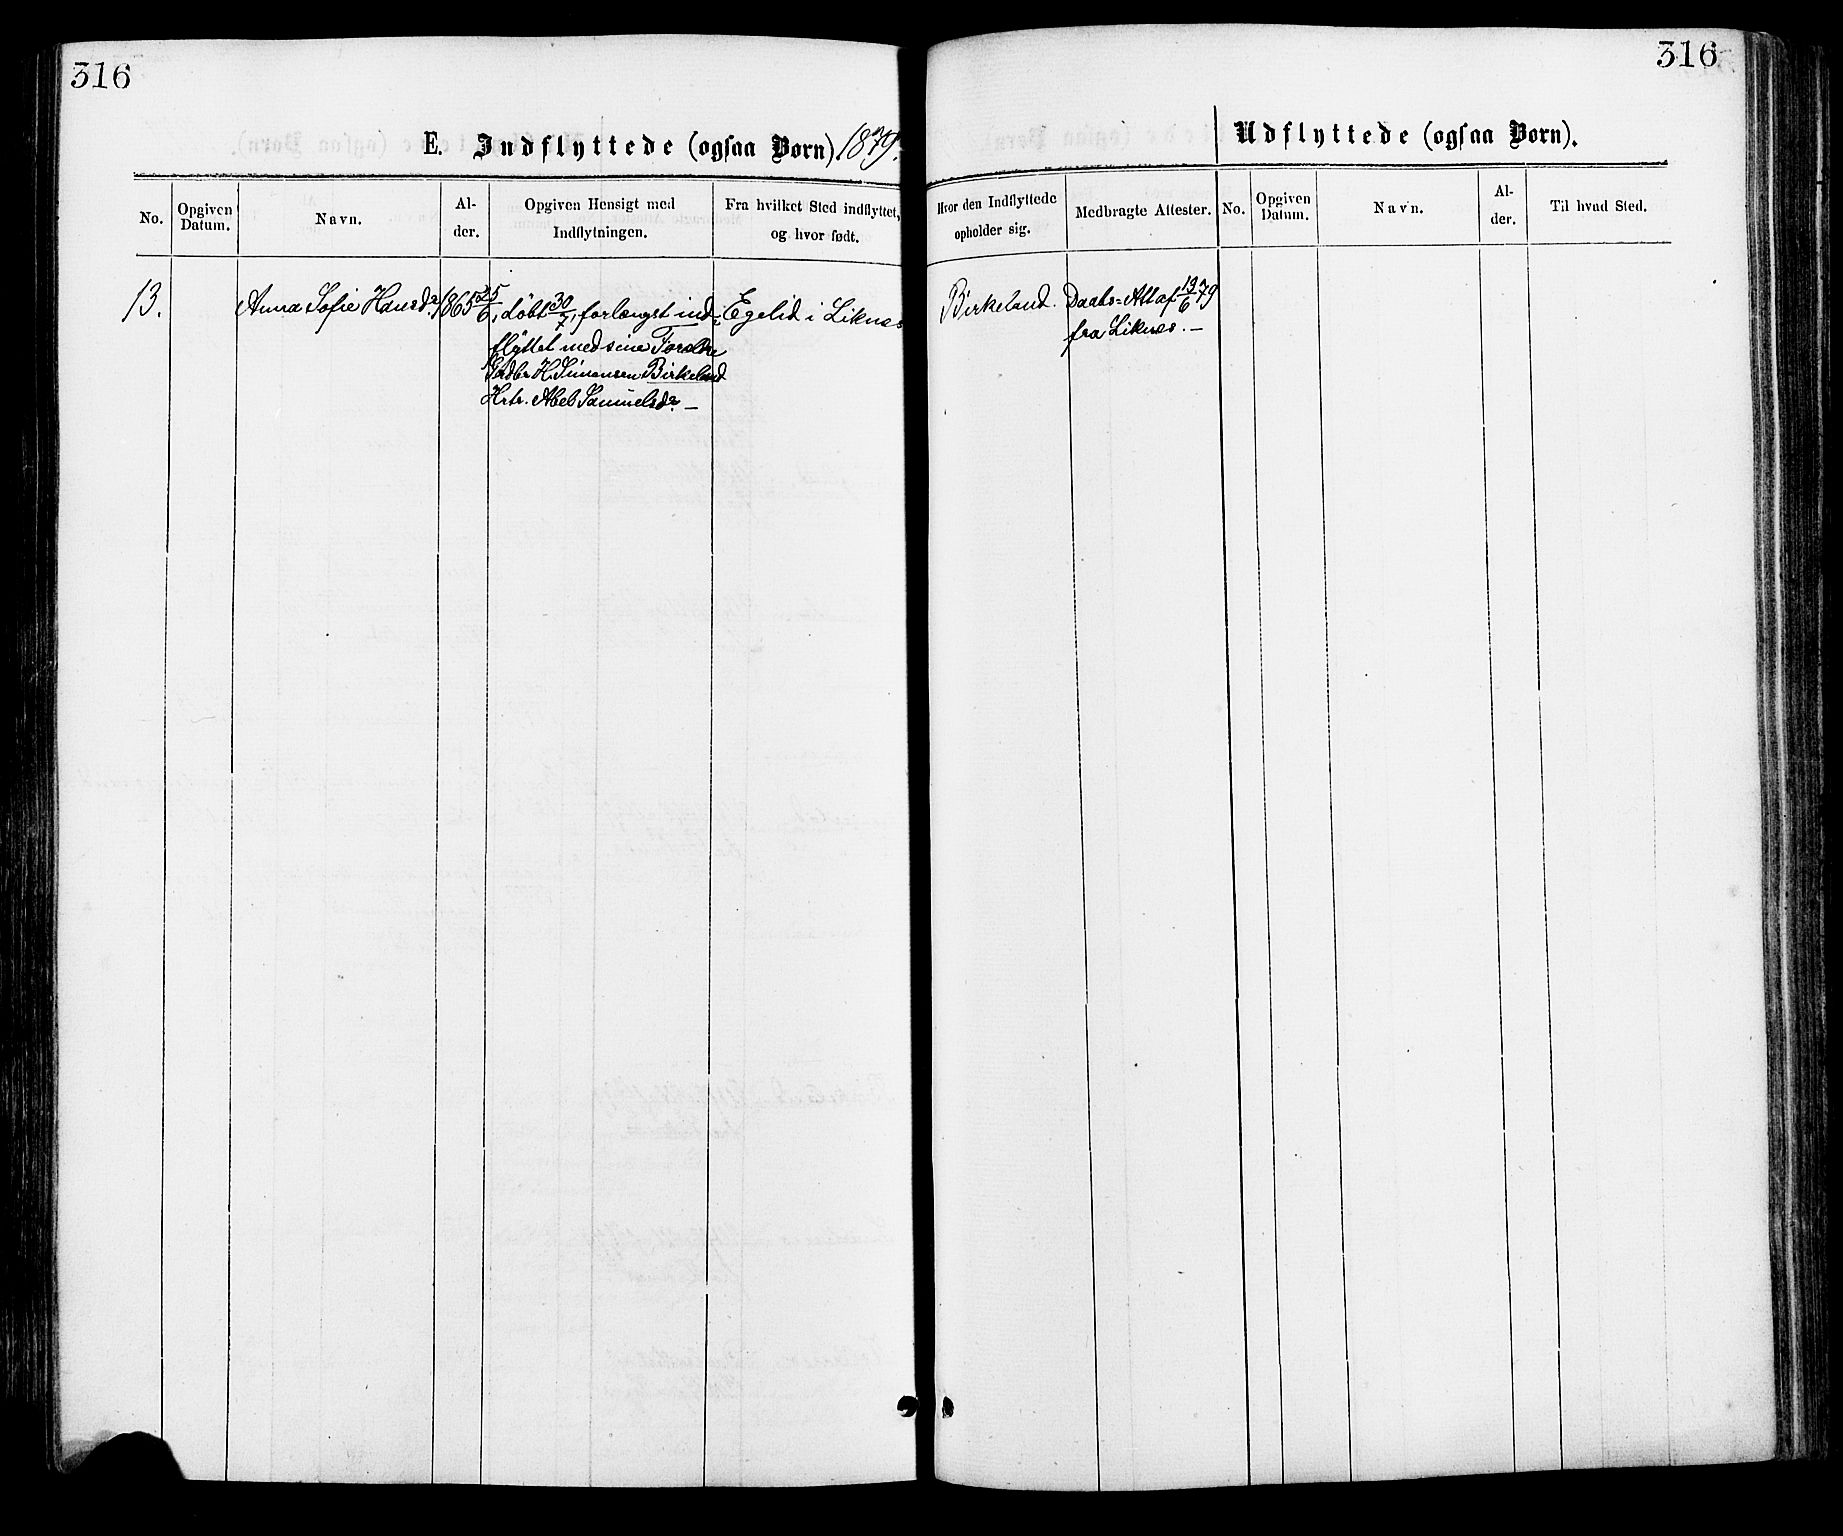 316
316
E. Indflyttede (ogsaa Børn) 1879.
Udflyttede (ogsaa Børn).
No.
Opgiven Datum.
Navn.
Al-
der.
Opgiven Hensigt med
Indflytningen.
Fra hvilket Sted indflyttet,
og hvor født.
Hvor den Indflyttede
opholder sig.
Medbragte Attester.
No.
Opgiven Datum.
Navn.
Al-
der.
Til hvad Sted.
13. Anna Sofie Hansdr. 1865 25/6, døbt 30/7, forlængst ind- Egelid i Liknes Birkeland. Daabs-Att af 13/6 79
flyttet med sine Forældre fra Liknes. —
Gdbr H. Simonsen Birkeland
Hstr. Abel Samuelsdr. —